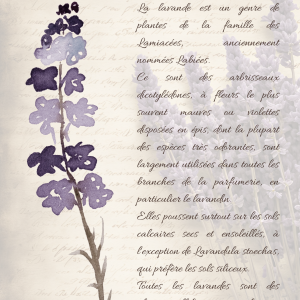 La lavande est un genre de
plantes de la famille des
Lamiacées, anciennement
nommées Labiées.
Ce sont des arbrisseaux
dicotylédones, à fleurs le plus
souvent mauves ou violettes
disposées en épis, dont la plupart
des espèces très odorantes, sont
largement utilisées dans toutes les
branches de la parfumerie, en
particulier le lavandin.
Elles poussent surtout sur les sols
calcaires secs et ensoleillés, à
l'exception de Lavandula stoechas,
qui préfère les sols siliceux.
Toutes les lavandes sont des